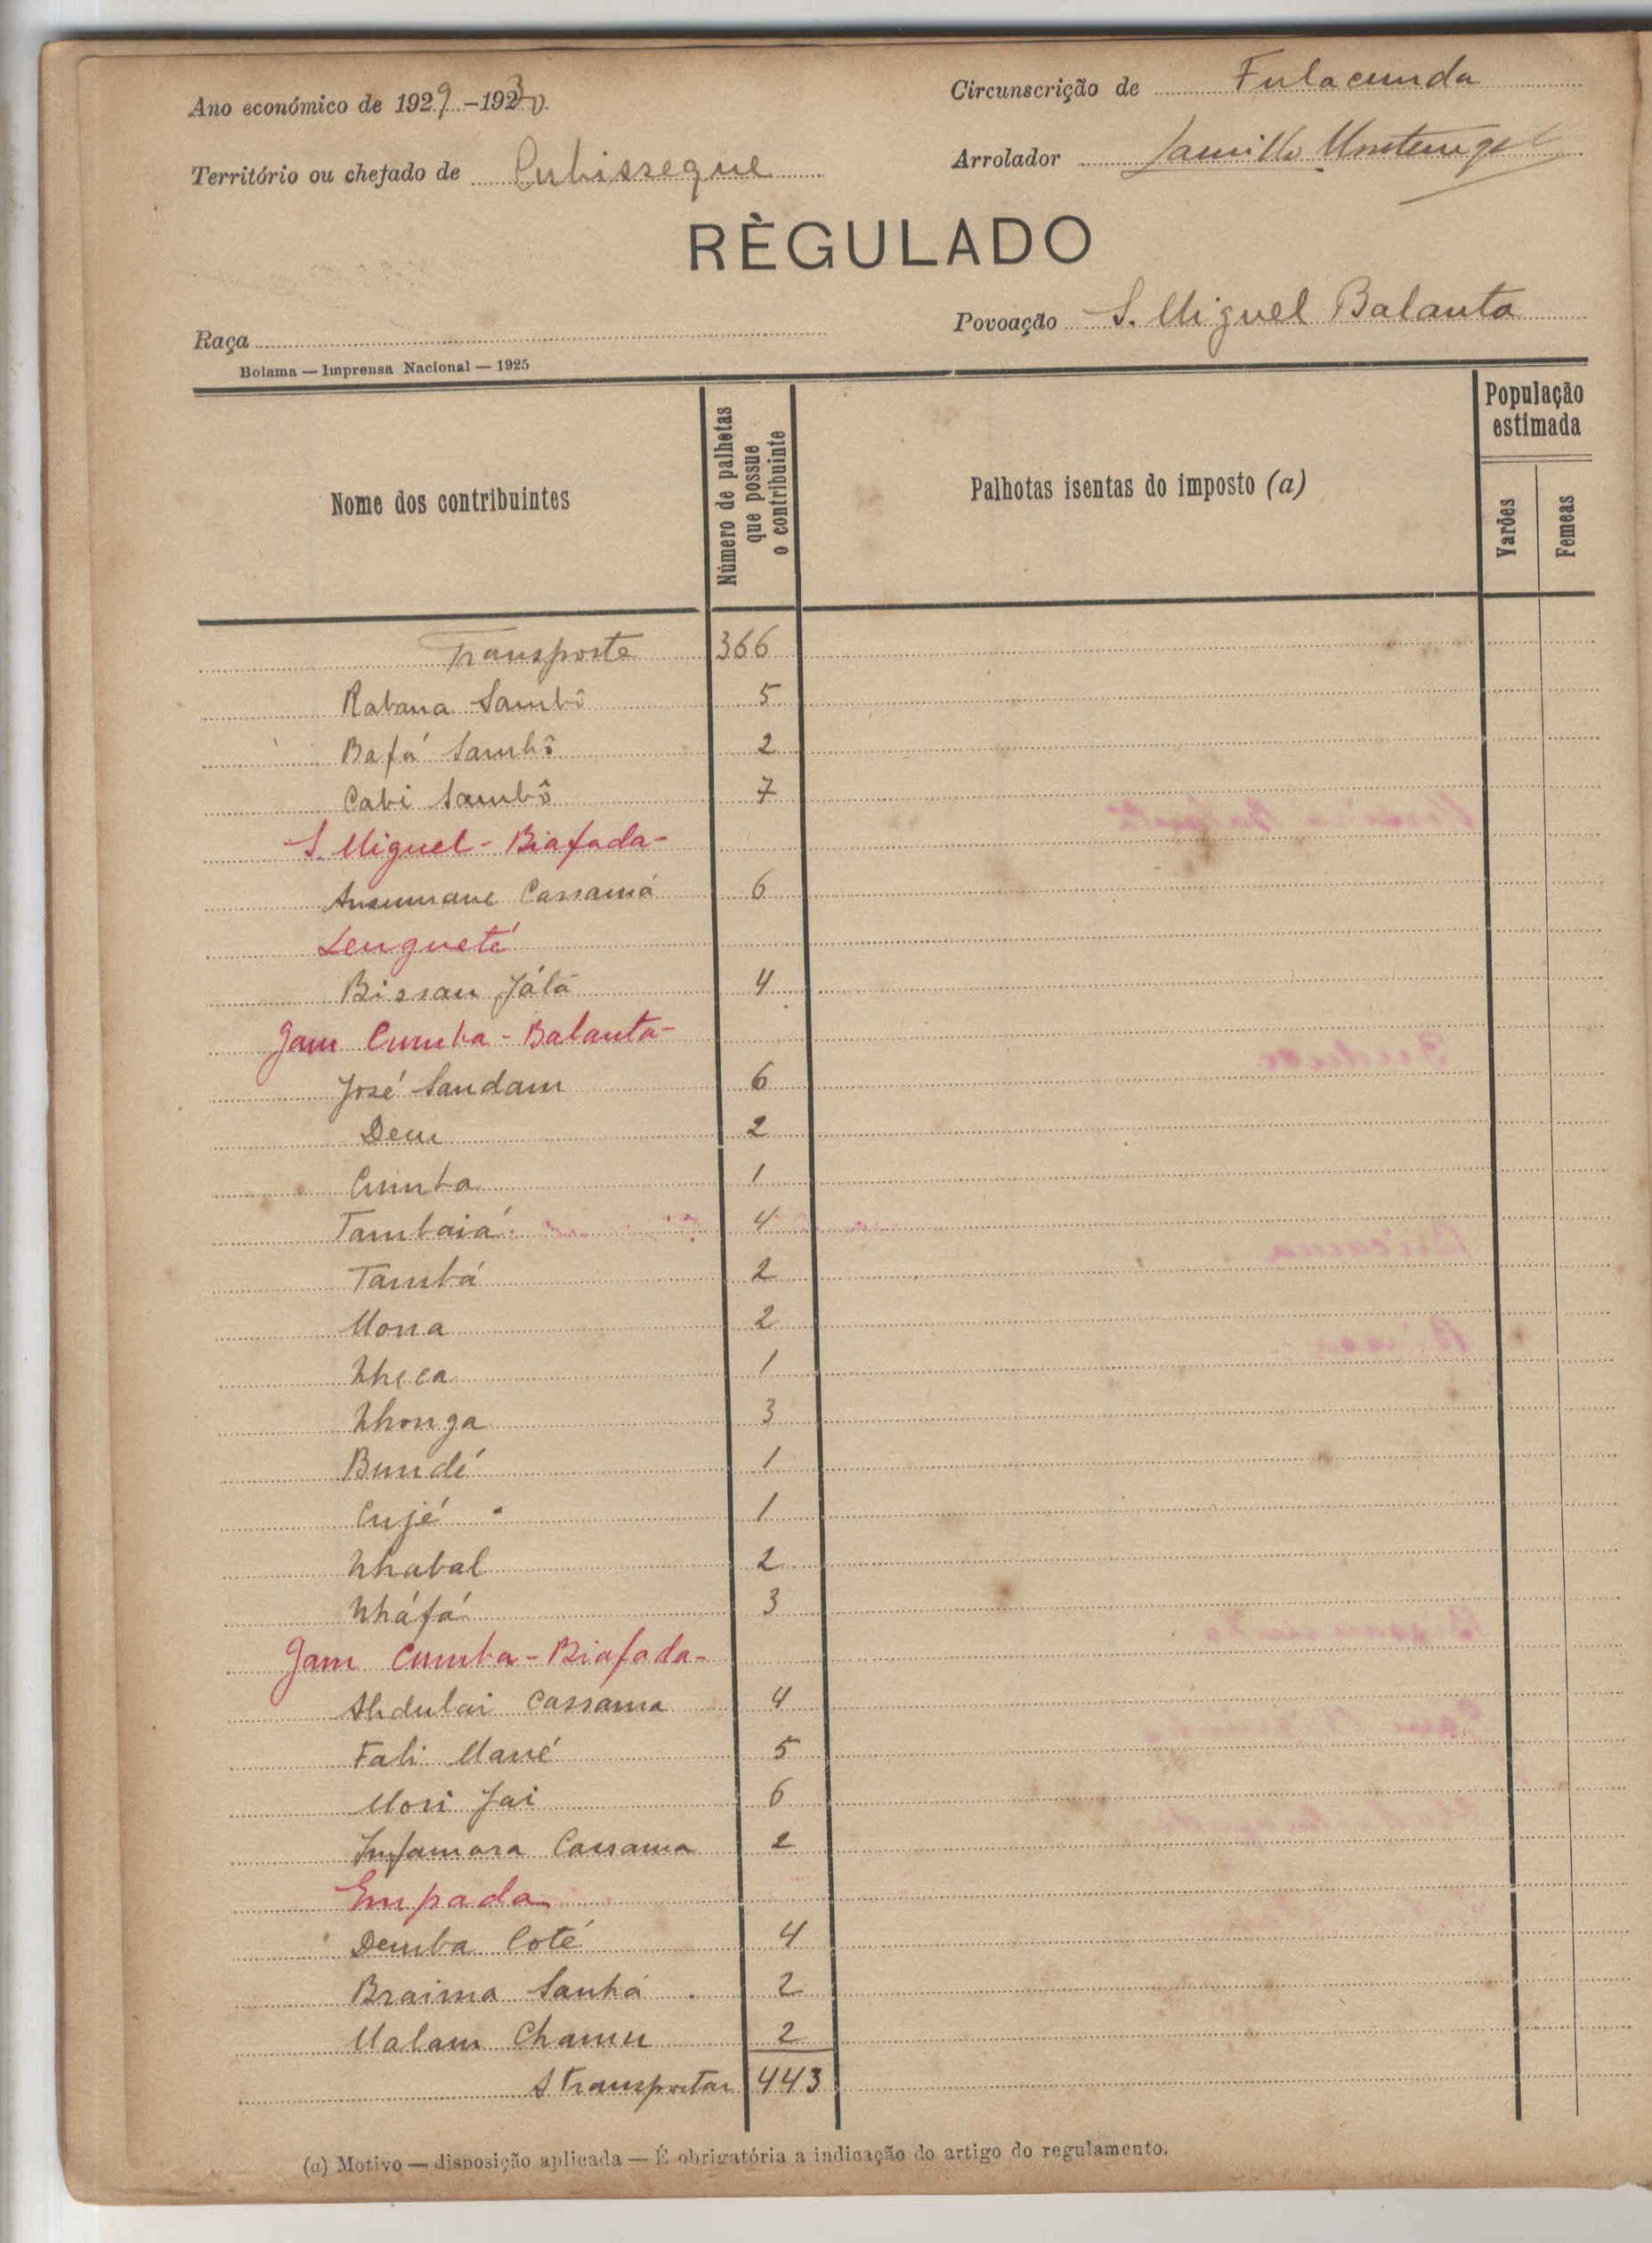 Ano económico de 1929-1930
Circunscrição de Fulacunda
Arrolador
Território ou chefado de Cubisseque
RÈGULADO
Raça
Povoação S. Miguel Balanta
Bolama — Imprensa Nacional — 1925
Nome dos contribuintes
Número de palhotas que possue o contribuinte
Palhotas isentas do imposto (a)
População estimada
Varões
Femeas
Transporte 366
Rabana Sambô 5
Bafá Sambô 2
Cabi Sambô 7
S. Miguel - Biafada -
Ansumane Cassamá 6
Lengueté
Bissau Játá 4
Gam Cumba - Balanta -
José Sandam 6
Dem 2
Cumba 1
Tambaiá 4
Tambá 2
Mona 2
Nheca 1
Nhonga 3
Bundé 1
Cujé 1
Nhabal 2
Nháfá 3
Gam Cumba - Biafada -
Abdulai Cassama 4
Fali Mané 5
Mori Jai 6
Infamara Cassama 2
Empada
Demba Coté 4
Braima Sanhá 2
Malam Chamu 2
A transportar 443
(a) Motivo — disposição aplicada — É obrigatória a indicação do artigo do regulamento.